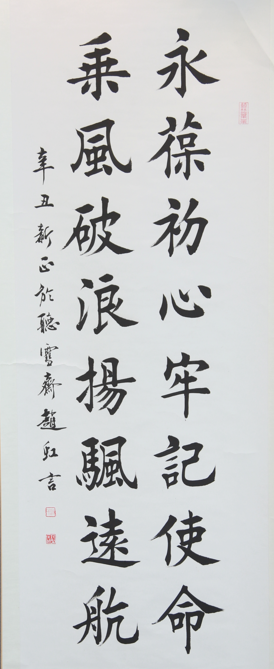 永葆初心牢記使命
乘風破浪揚颿遠航
辛丑新正於聽雪齋趙虹言